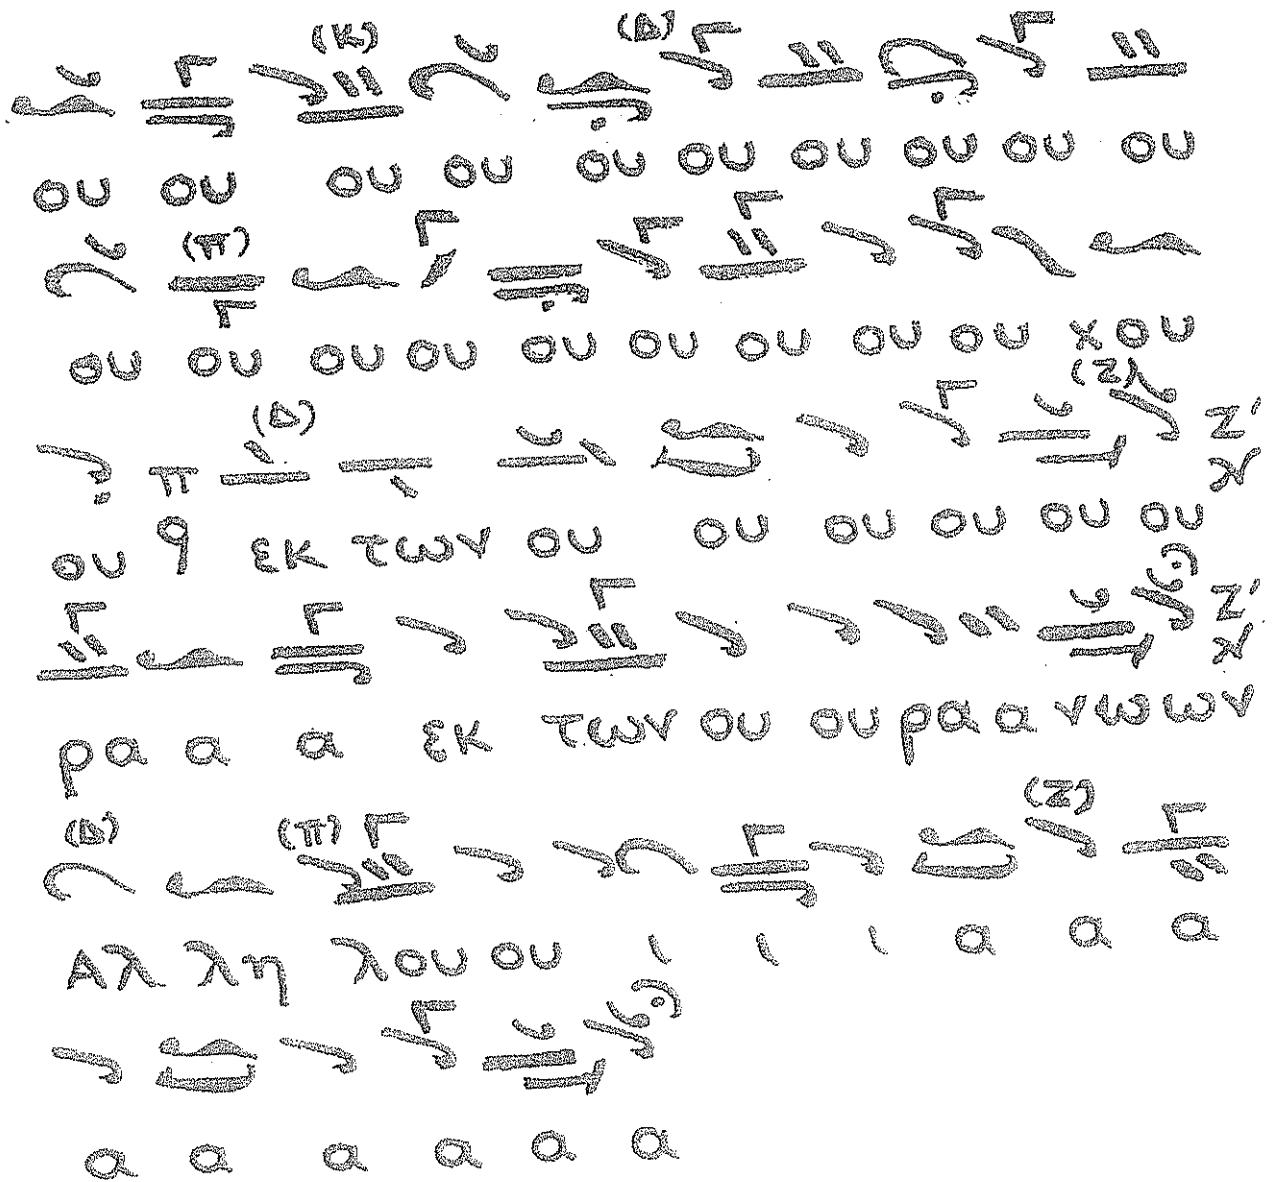 (Κ) (Δ)
ου ου ου ου ου ου ου ου ου ου
(π)
ου ου ου ου ου ου ου ου ου χου
(Δ) (Ζ) Ζ'
ου π q εκ των ου ου ου ου ου ου
Ζ'
ρα α α εκ των ου ου ρα α νω ων
(Δ) (π) (Ζ)
Αλ λη λου ου ι ι ι α α α
α α α α α α